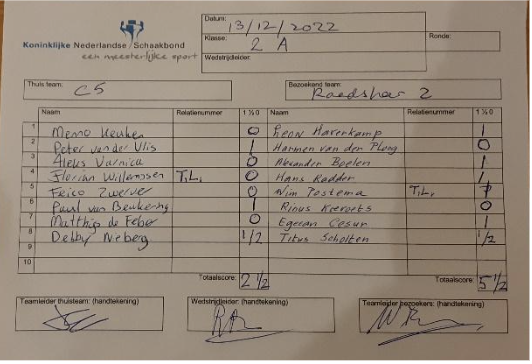 Koninklijke Nederlandse Schaakbond
een meesterlijke sport
Datum: 13/12/2022
Klasse: 2 A
Ronde:
Wedstrijdleider:
Thuis team: C5
Bezoekend team: Raadsheer 2
Naam Relatienummer 1 ½ 0 Naam Relatienummer 1 ½ 0
1 Menno 0 Haverkamp 1
2 Peter van der Vlis 1 Harmen van der Ploeg 0
3 Aleks Varnica 0 Alexander Boelen 1
4 Florian Willemosen T.L. 0 Hans Kadder 1
5 Feico Zwerver 0 Wim Postema T.L. 1
6 Paul van Beukering 1 Rinus 0
7 Matthijs de Feber 0 Cesur 1
8 Debby Nieberg 1/2 Titus Scholten 1/2
9
10
Totaalscore: 2 1/2 Totaalscore: 5 1/2
Teamleider thuisteam: (handtekening) Wedstrijdleider: (handtekening) Teamleider bezoekers: (handtekening)